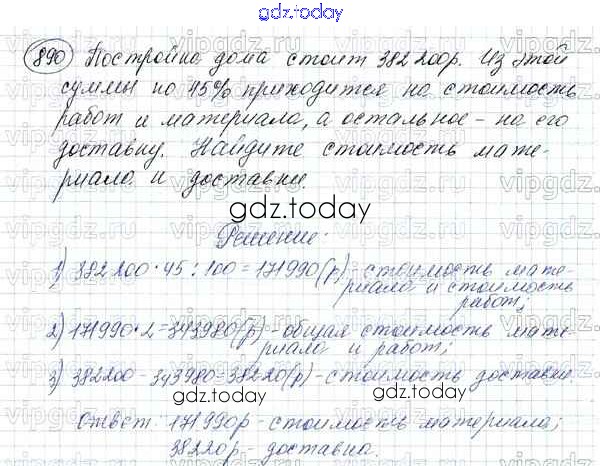 gdz.today
890 Постройка дома стоит 382 200р. Из этой
суммы по 45% приходится на стоимость
работ и материала, а остальное - на его
доставку. Найдите стоимость мате-
риала и доставки.
gdz.today
Решение:
1) 382 200 · 45 : 100 = 171990(р) - стоимость мате-
риала и стоимость
работ;
2) 171990 · 2 = 343980(р) - общая стоимость мате-
риала и работ;
3) 382200 - 343980 = 38220(р) - стоимость доставки.
Ответ: 171990р - стоимость материала;
38220р - доставка.
gdz.today